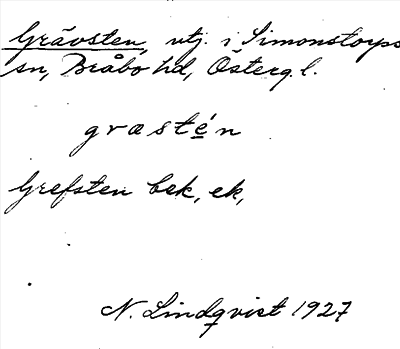 Grävsten, utj. i Simonstorps
sn, Bråbo hd, Österg.l.
græstén
Grefsten bek, ek,
N. Lindqvist 1927